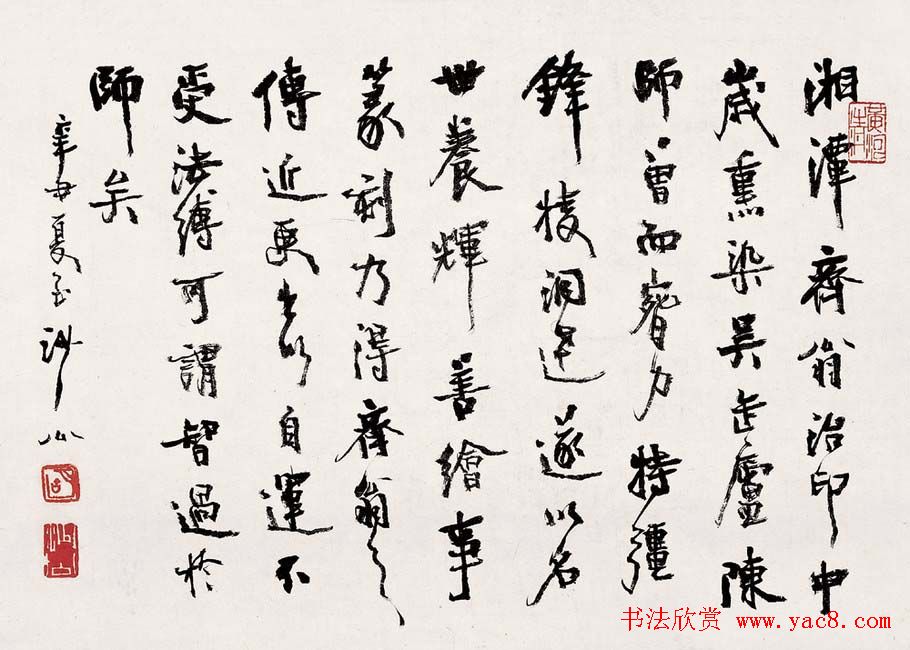 湘潭齊翁治印中
歲熏染吳缶廬陳
師曾而膂力特彊
鋒棱洞達遂以名
世養輝善繪事
篆刻乃得齊翁之
傳近更出以自運不
受法縛可謂智過於
師矣
辛丑夏至沙
书法欣赏 www.yac8.com